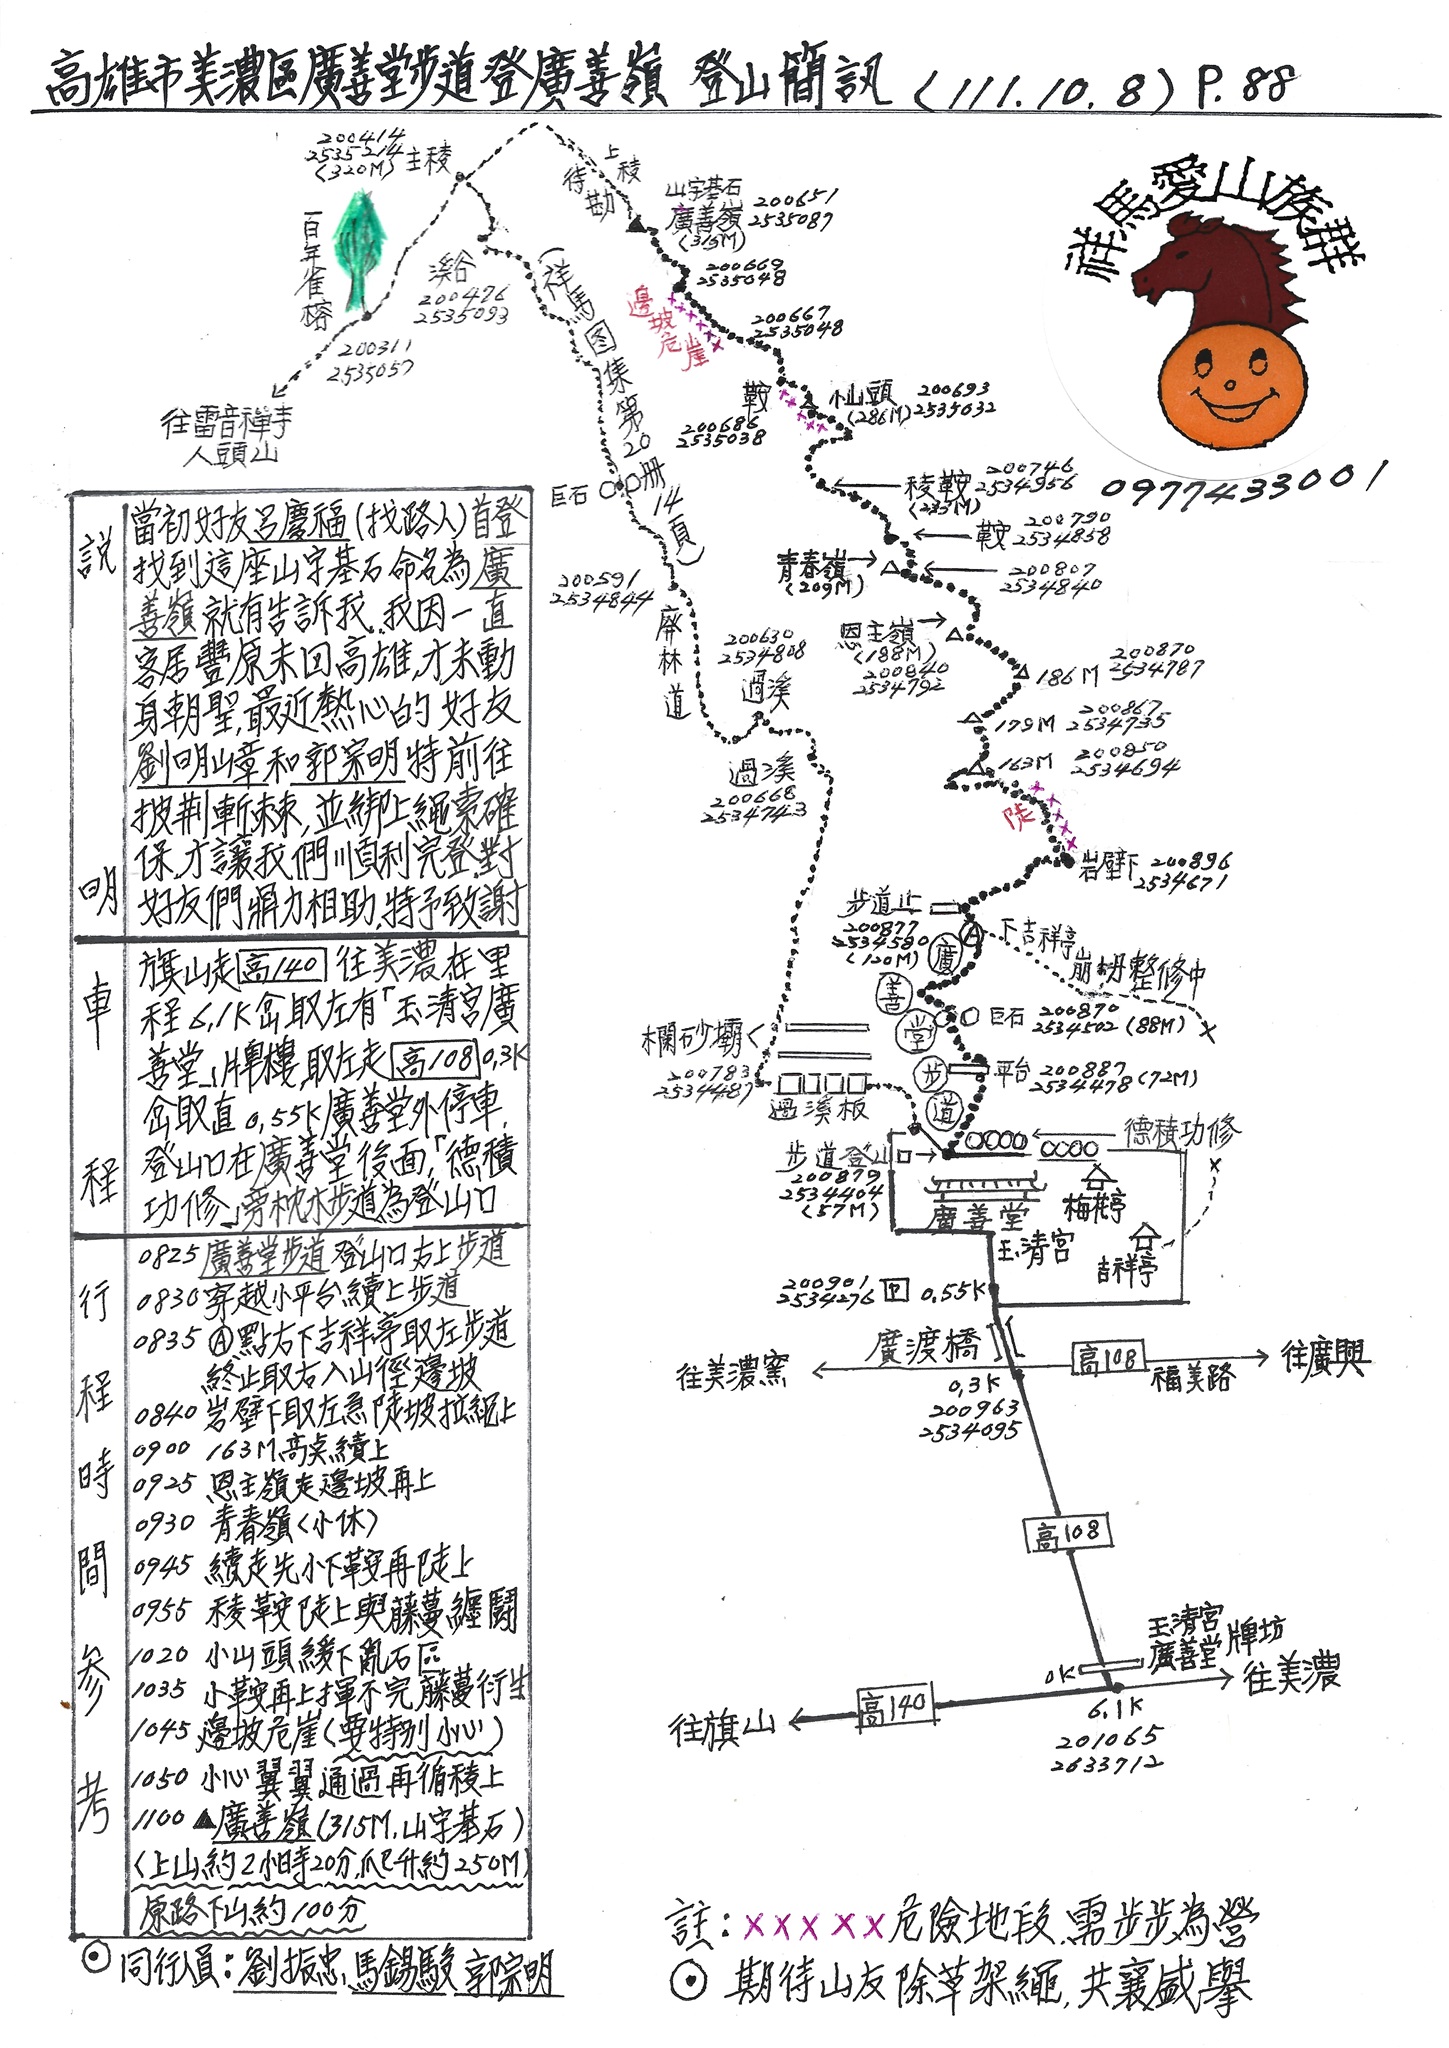 高雄市美濃區廣善堂步道登廣善嶺 登山簡訊 (111.10.8) P.88
祥馬愛山族群
0977433001
200414
2535214
(320M) 主稜
上稜
待勘
山字基石
廣善嶺
(315M)
200651
2535087
百年雀榕
溪谷
200476
2535093
200311
2535057
往雷音禪寺
人頭山
(祥馬图集第20册14頁)
200669
2535048
邊坡危崖
200667
2535048
鞍
200686
2535038
小山頭
(286M)
200693
2535032
巨石
稜鞍
(233M)
200746
2534956
鞍 200790
2534858
青春嶺
(209M)
200807
2534840
200591
2534844
廢林道
200630
2534808
過溪
過溪
200668
2534743
恩主嶺
(188M)
200840
2534792
186M
200870
2534787
179M
200867
2534735
163M
200850
2534694
陡
岩壁下 200896
2534671
步道止
200877
2534580
(120M)
A 下吉祥亭
崩坍整修中
廣善堂步道
巨石 200870
2534502 (88M)
平台 200887
2534478 (72M)
欄砂壩
200783
2534487
過溪板
德積功修
步道登山口
200879
2534404
(57M)
廣善堂
玉清宮
梅花亭
吉祥亭
200901
2534276 P 0.55K
廣渡橋
往美濃窯
高108
福美路
往廣興
0.3K
200963
2534095
高108
玉清宮
廣善堂 牌坊
0K
往美濃
往旗山
高140
6.1K
201065
2633712
說明
當初好友呂慶福(找路人)首登
找到這座山字基石命名為廣
善嶺就有告訴我,我因一直
客居豐原未回高雄,才未動
身朝聖,最近熱心的好友
劉明山章和郭宗明特前往
披荆斬棘,並綁上繩索確
保,才讓我們順利完登,對
好友們鼎力相助,特予致謝
車程
旗山走 高140 往美濃在里
程6.1K岔取左有「玉清宮廣
善堂」牌樓,取左走 高108 0.3K
岔取直0.55K廣善堂外停車,
登山口在廣善堂後面,「德積
功修」旁枕木步道為登山口
行程時間參考
0825 廣善堂步道登山口右上步道
0830 穿越小平台續上步道
0835 A點右下吉祥亭取左步道
終止取右入山徑邊坡
0840 岩壁下取左急陡坡拉繩上
0900 163M高点續上
0925 恩主嶺走邊坡再上
0930 青春嶺(小休)
0945 續走先小下鞍再陡上
0955 稜鞍陡上與藤蔓纏鬪
1020 小山頭緩下亂石區
1035 小鞍再上揮不完藤蔓衍生
1045 邊坡危崖(要特別小心)
1050 小心翼翼通過再循稜上
1100 ▲廣善嶺(315M,山字基石)
(上山約2小時20分,爬升約250M)
原路下山約100分
⊙同行人員:劉振忠,馬錫駿 郭宗明
註:XXXXX危險地段,需步步為營
⊙期待山友除草架繩,共襄盛舉